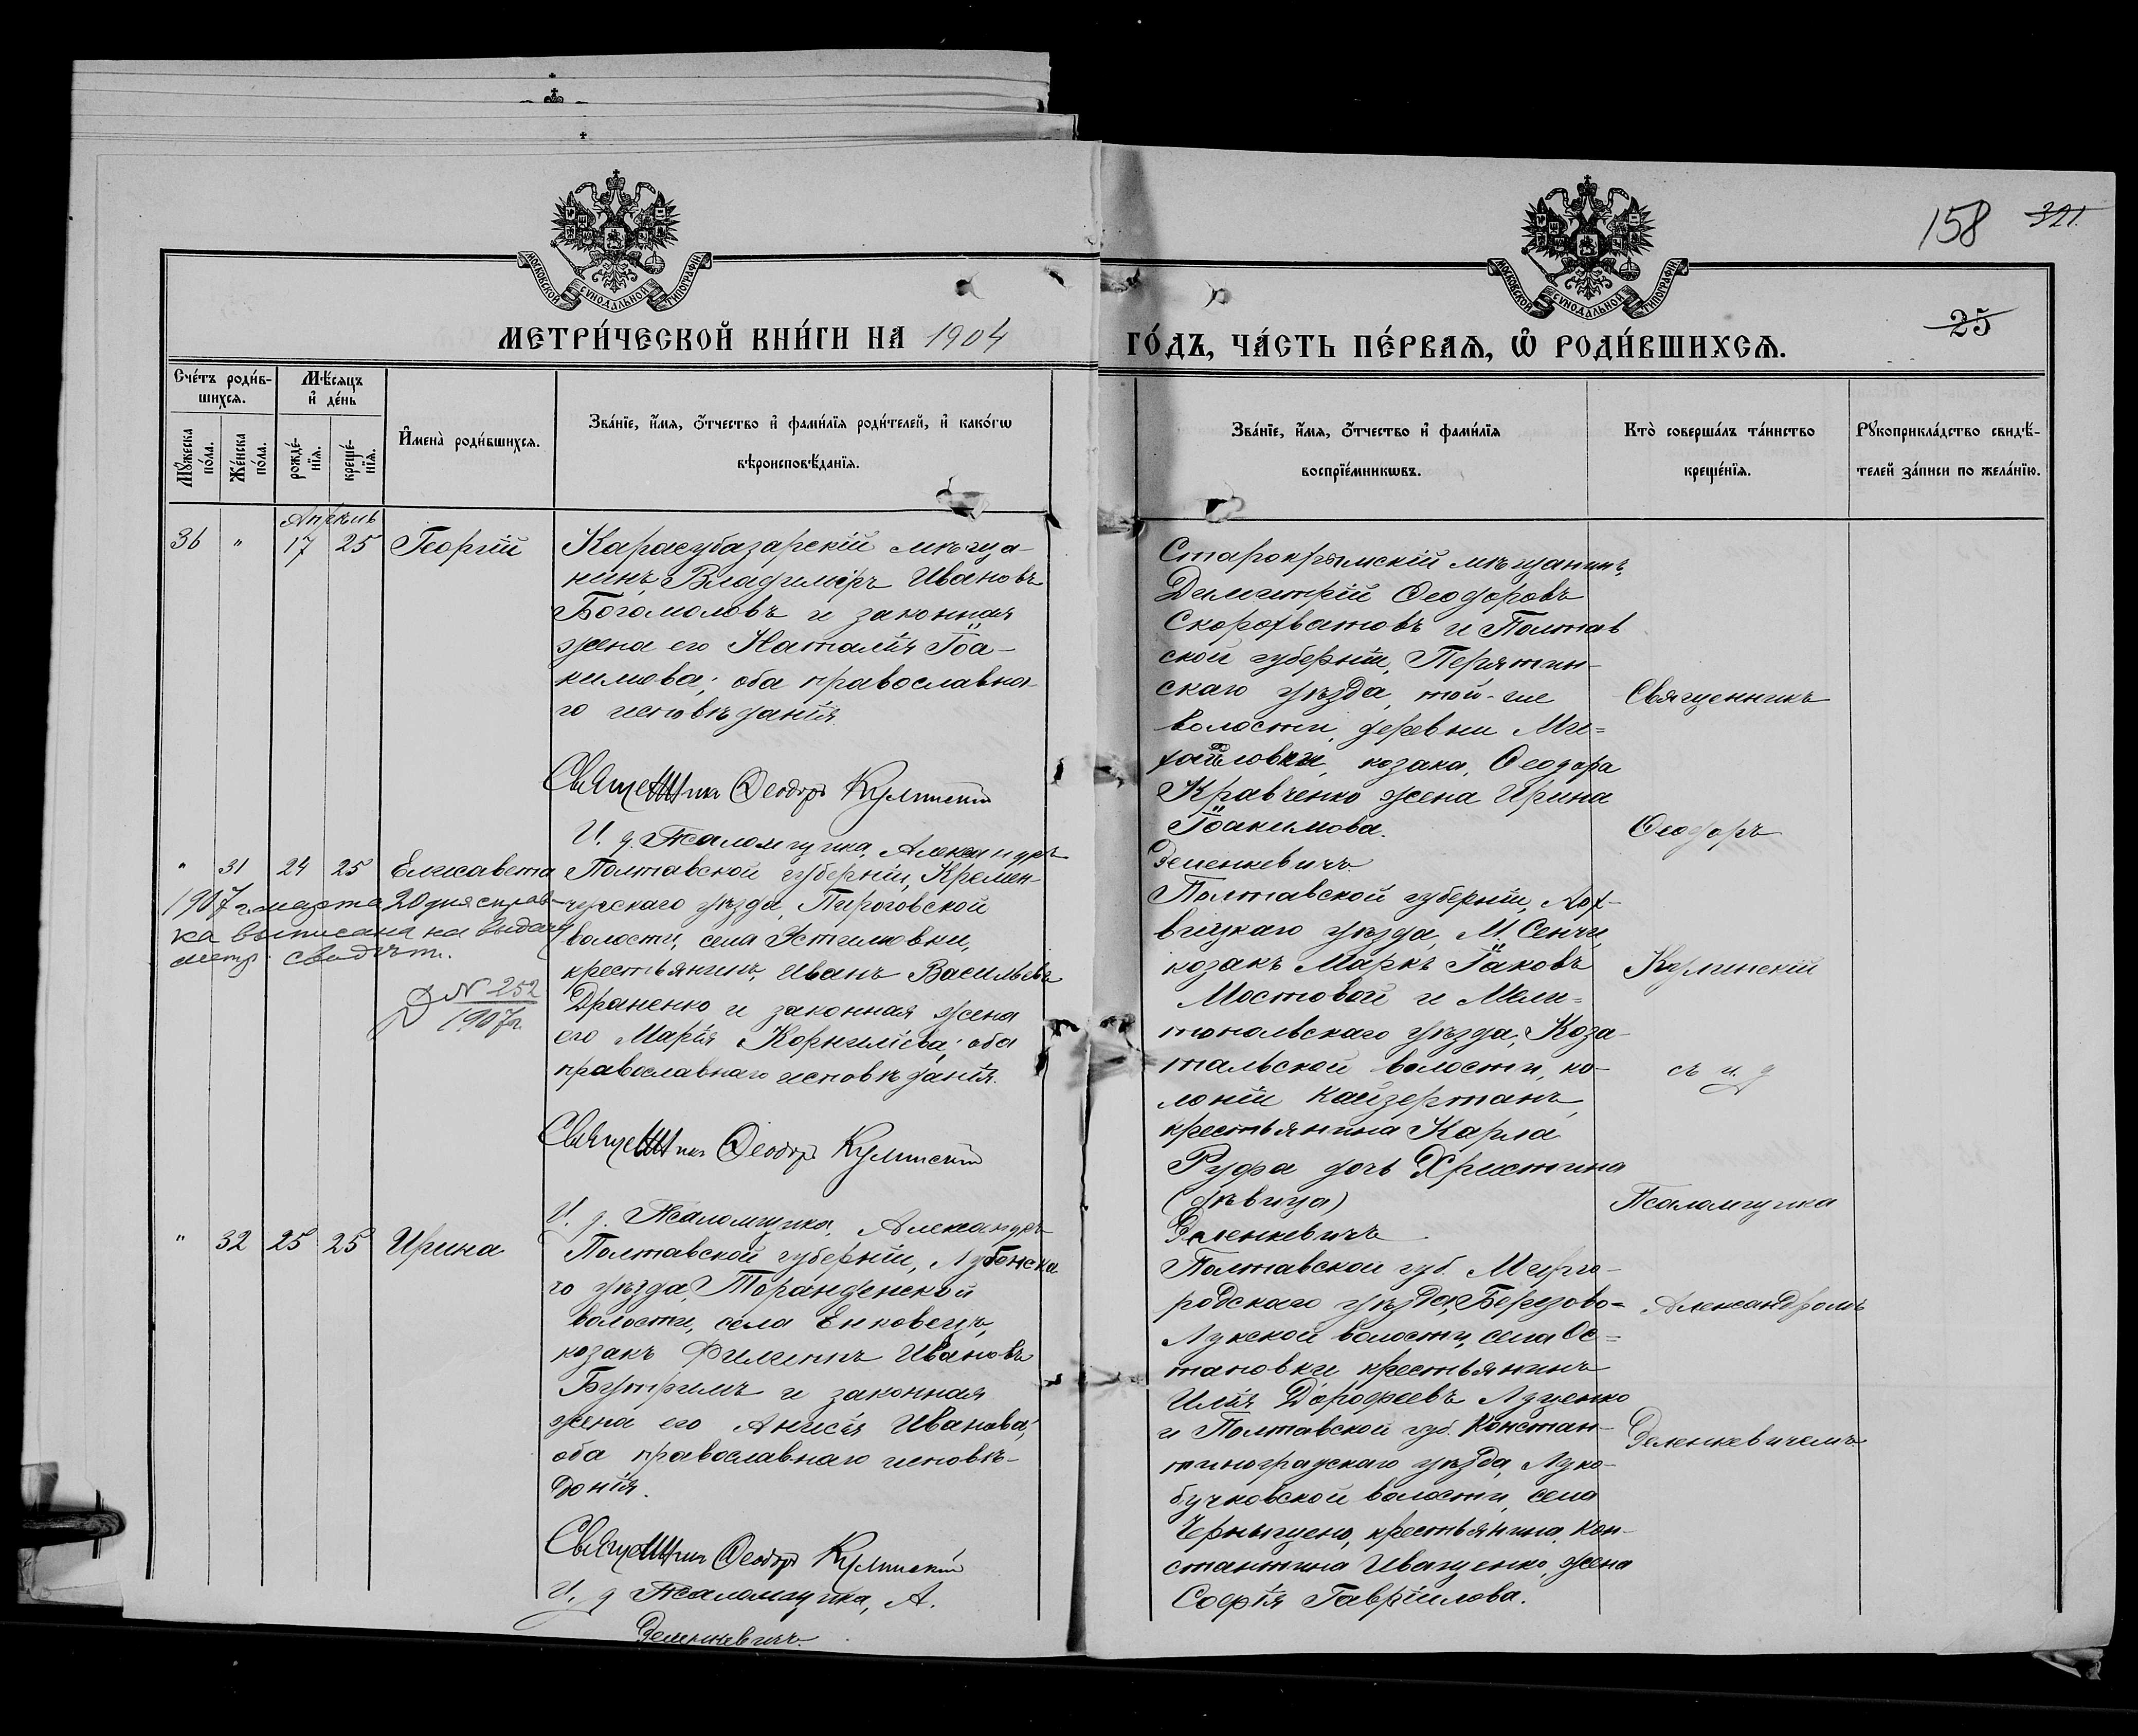 158 321.
МОСКОВСКОЙ СѴНОДАЛЬНОЙ ТИПОГРАФІИ
МОСКОВСКОЙ СѴНОДАЛЬНОЙ ТИПОГРАФІИ
25
МЕТРИ́ЧЕСКОЙ КНИ́ГИ НА 1904
ГО́ДЪ, ЧА́СТЬ ПЕ́РВАѦ, Ѡ РОДИ́ВШИХСѦ.
Сче́тъ роди́в-
шихсѧ.
Мужеска по́ла.
Же́нска по́ла.
Мѣ́сяцъ
и҆ де́нь
рожде́-
нїѧ.
креще́-
нїѧ.
И҆мена̀ роди́вшихсѧ.
Зва́нїе, и҆́мѧ, ѻ҆́тчество и҆ фами́лїѧ роди́телей, и҆ како́гѡ
вѣроисповѣ́данїѧ.
Зва́нїе, и҆́мѧ, ѻ҆́тчество и҆ фами́лїѧ
воспрїе́мникѡвъ.
Кто̀ соверша́лъ та́инство
креще́нїѧ.
Рꙋкоприкла́дство свидѣ́-
телей за́писи по жела́нїю.
Апрѣль
36 " 17 25 Георгій
Карасубазарскій мѣща-
нинъ, Владиміръ Ивановъ
Богомоловъ и законная
жена его Наталія Іоа-
кимова; оба православна-
го исповѣданія.
Священникъ Ѳеодоръ Кулинскій
И. д. Псаломщика, Александръ
Зеленкевичъ.
Старокрымскій мѣщанинъ,
Димитрій Ѳеодоровъ
Скорохватовъ и Полтав
ской губерніи, Пирятин-
скаго уѣзда, той-же
волости, деревни Ми=
хайловки, козака, Ѳеодора
Кравченко жена Ирина
Іоакимова.
" 31 24 25 Елисавета
1907 г. марта 20 дня справ-
ка выписана на выдачу
метр. свидѣт.
№ 252
1907г.
Полтавской губерніи, Кремен-
чугскаго уѣзда, Пироговской
волости, села Устимовки,
крестьянинъ, Иванъ Васильевъ
Драненко и законная жена
его Марія Корниліева; оба
православнаго исповѣданія.
Священникъ Ѳеодоръ Кулинскій
И. д. Псаломщика, Александръ
Зеленкевичъ
Полтавской губерніи, Лох-
вицкаго уѣзда, М. Сенчи,
козакъ Маркъ Іаковъ
Мостовой и Мели=
топольскаго уѣзда,
волости, ко-
лоніи Кайзерталь,
крестьянина Карла
Руфа дочь Христина
(дѣвица)
" 32 25 25 Ирина
Полтавской губерніи, Лубенска
го уѣзда,
волости, села Енковецъ,
козакъ Филиппъ Ивановъ
Бутримъ и законная
жена его Анисія Иванова;
оба православнаго исповѣ-
данія.
Священникъ Ѳеодоръ Кулинскій
И. д. Псаломщика, А.
Зеленкевичъ.
Полтавской губ. Мирго-
родскаго уѣзда, Березово=
Лукской волости, села Ос=
таповки крестьянинъ
Илія Дороѳеевъ Луценко
и Полтавской губ. Констан-
тиноградскаго уѣзда,
волости, села
крестьянина, Кон-
стантина Иващенко, жена
Софія Гавріилова.
Священникъ
Ѳеодоръ
Кулинскій
съ и. д
Псаломщика
Александромъ
Зеленкевичемъ